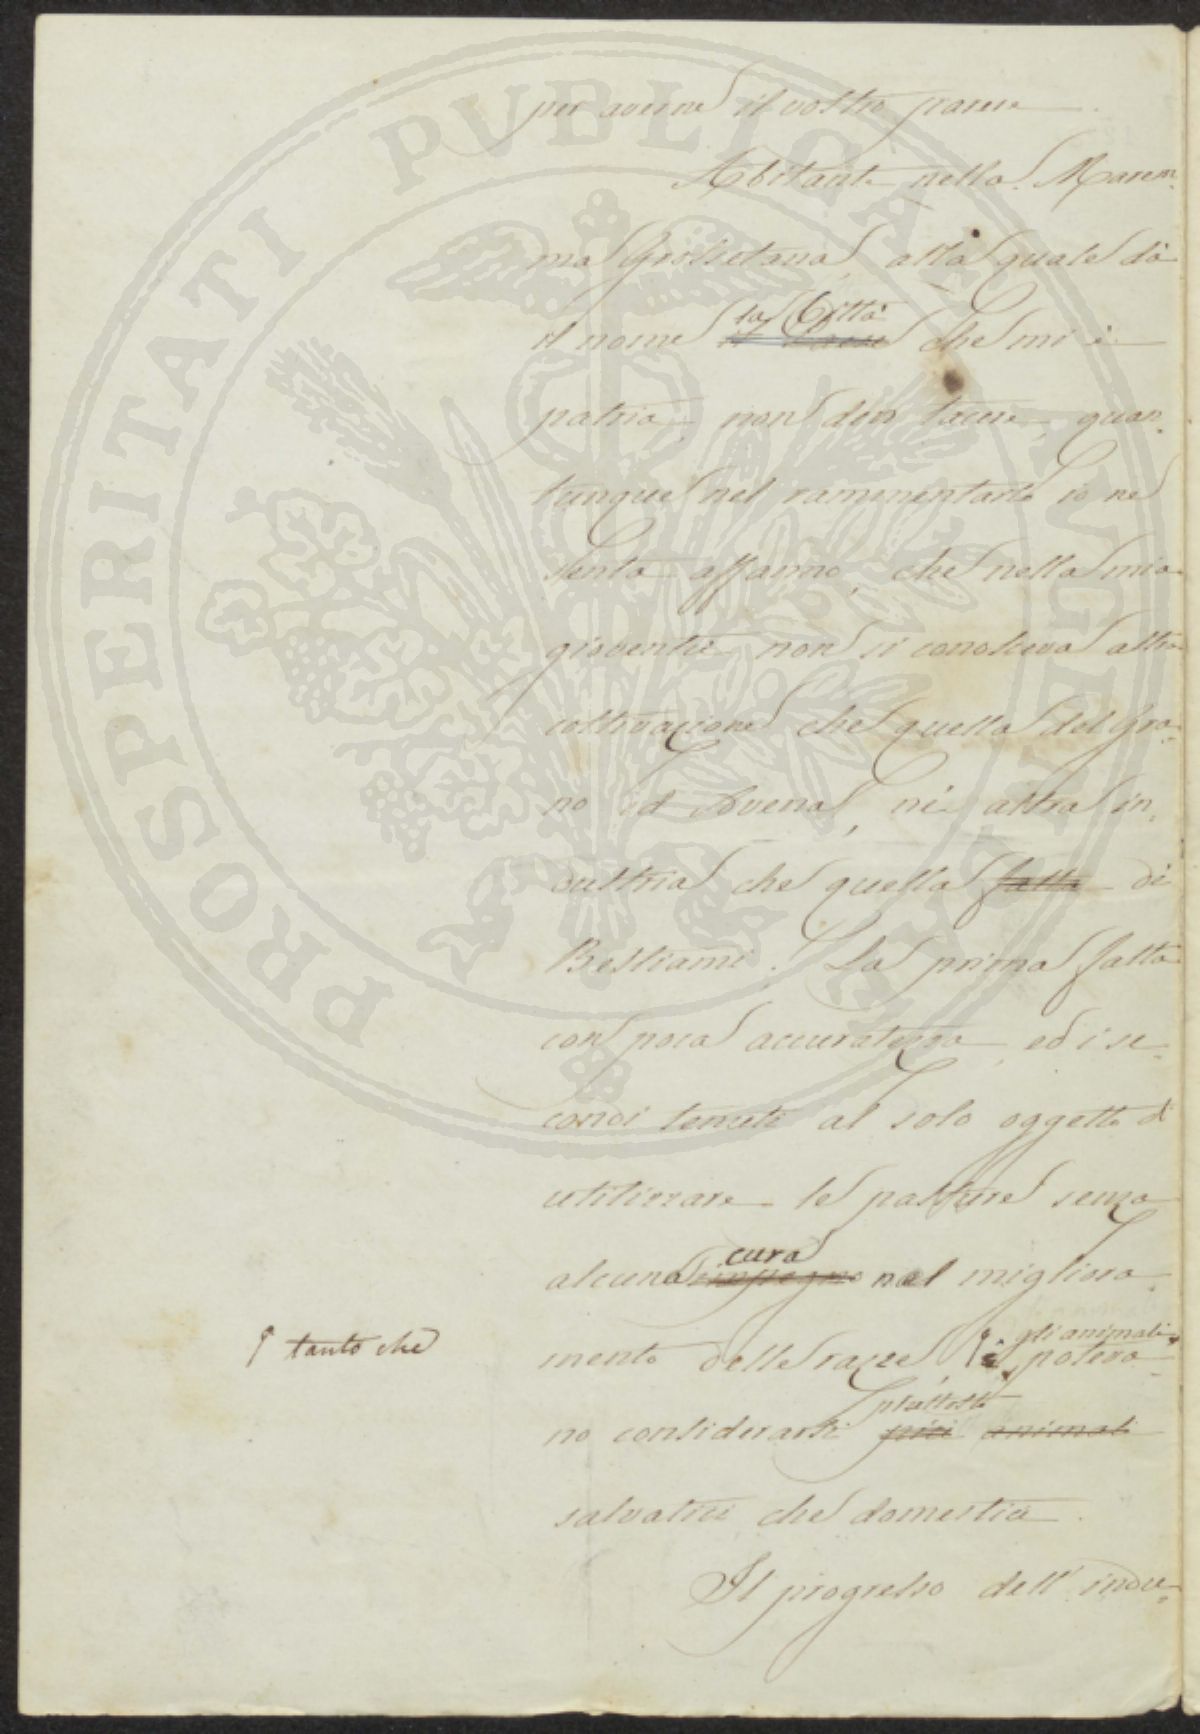 PROSPERITATI PUBLICAE AUGENDAE
per averne il vostro parere.
Abitante nella Marem-
ma Grossetana, alla quale dà
la Città
il nome il Paese che mi è
patria, non devo tacere, quan-
tunque nel rammentarlo io ne
senta affanno, che nella mia
gioventù non si conosceva altra
coltivazione che quella del Gra-
no ed Avena, nè altra in-
dustria che quella fatta di
Bestiami. La prima fatta
con poca accuratezza, ed i se-
condi tenuti al solo oggetto di
utilizzare le pasture senza
cura
alcuna impegno nel migliora-
tanto che
gli animali
mento delle razze, poteva-
piuttosto
no considerarsi più animali
salvatici che domestici.
Il progresso dell'indu-